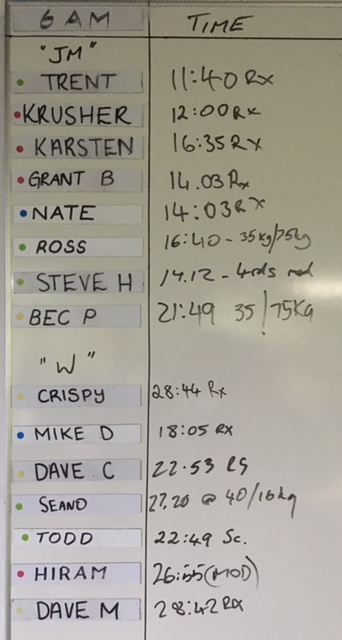 6 AM TIME
"JM"
TRENT 11:40 Rx
KRUSHER 12:00 Rx
KARSTEN 16:35 Rx
GRANT B 14.03 Rx
NATE 14:03 Rx
ROSS 16:40 - 35kg/75kg
STEVE H 14.12 - 4rds mod
BEC P 21:49 35/75Kg
"W"
CRISPY 28:44 Rx
MIKE D 18:05 RX
DAVE C 22.53
SEANO 27.20 @ 40/16kg
TODD 22:49 Sc.
HIRAM 26:55 (MOD)
DAVE M 28:42 RX